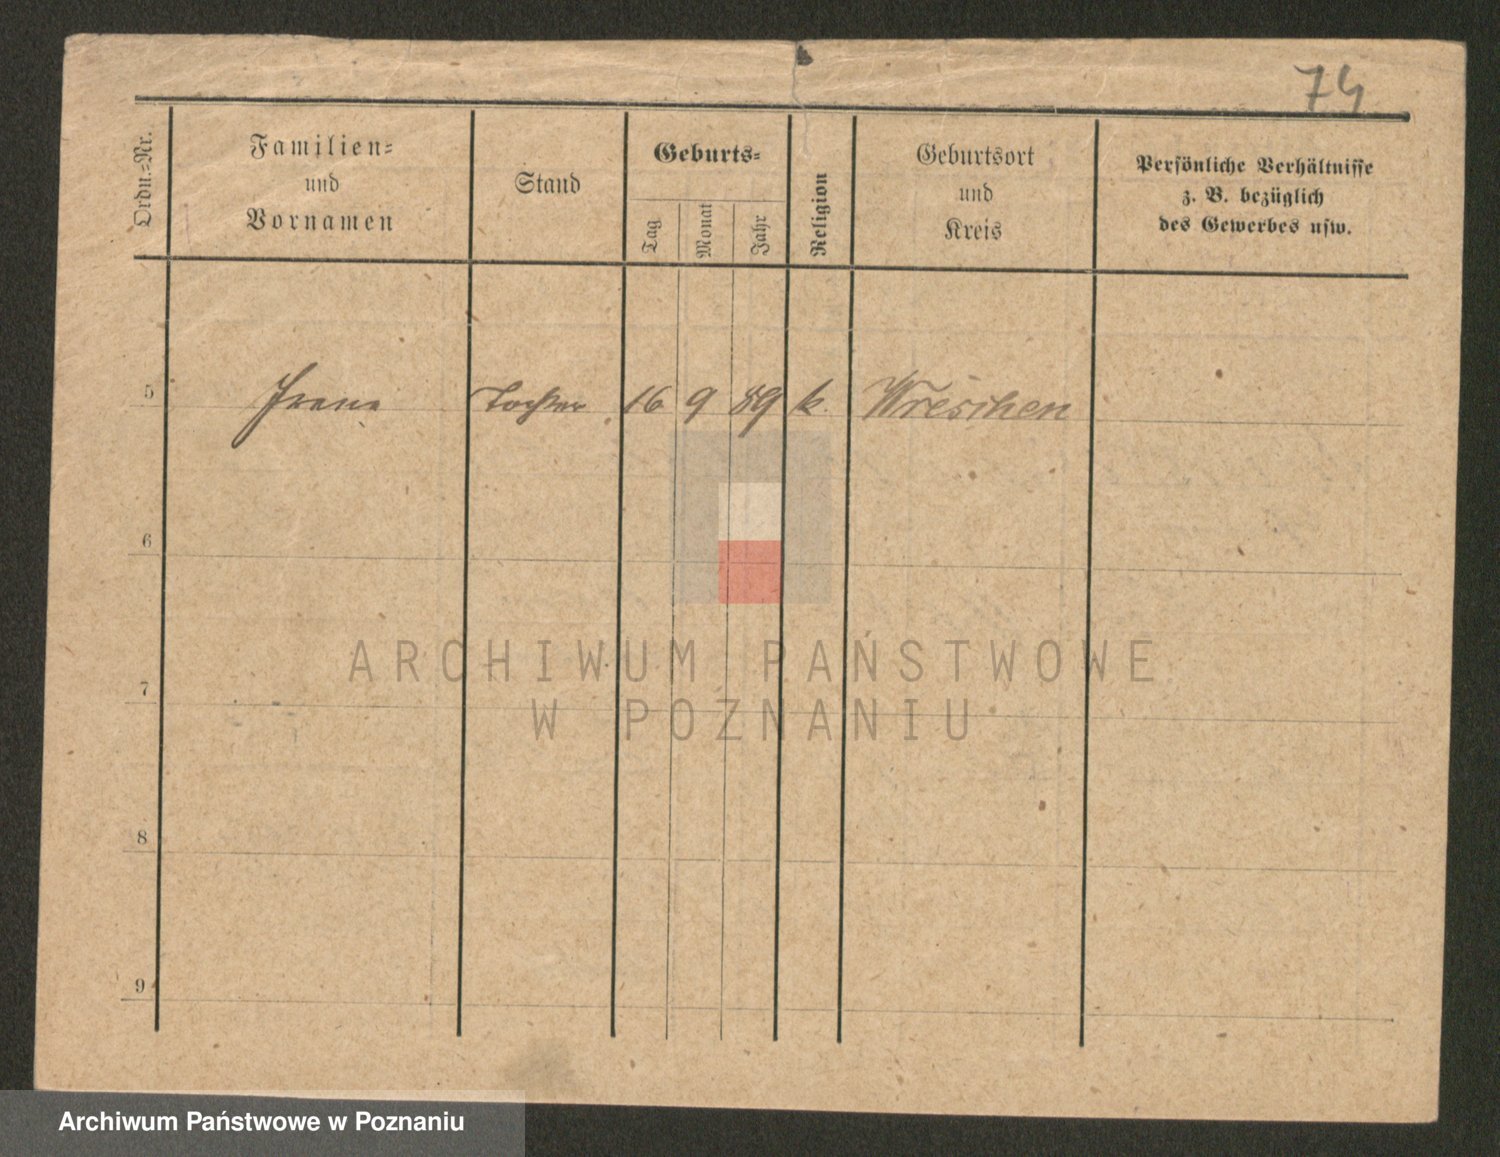 74
Ordn.-Nr.
Familien-
und
Vornamen
Stand
Geburts-
Tag
Monat
Jahr
Religion
Geburtsort
und
Kreis
Persönliche Verhältnisse
z. B. bezüglich
des Gewerbes usw.
5 Irene Tochter 16 9 89 k. Wreschen
6
7
8
9
ARCHIWUM PAŃSTWOWE
W POZNANIU
Archiwum Państwowe w Poznaniu